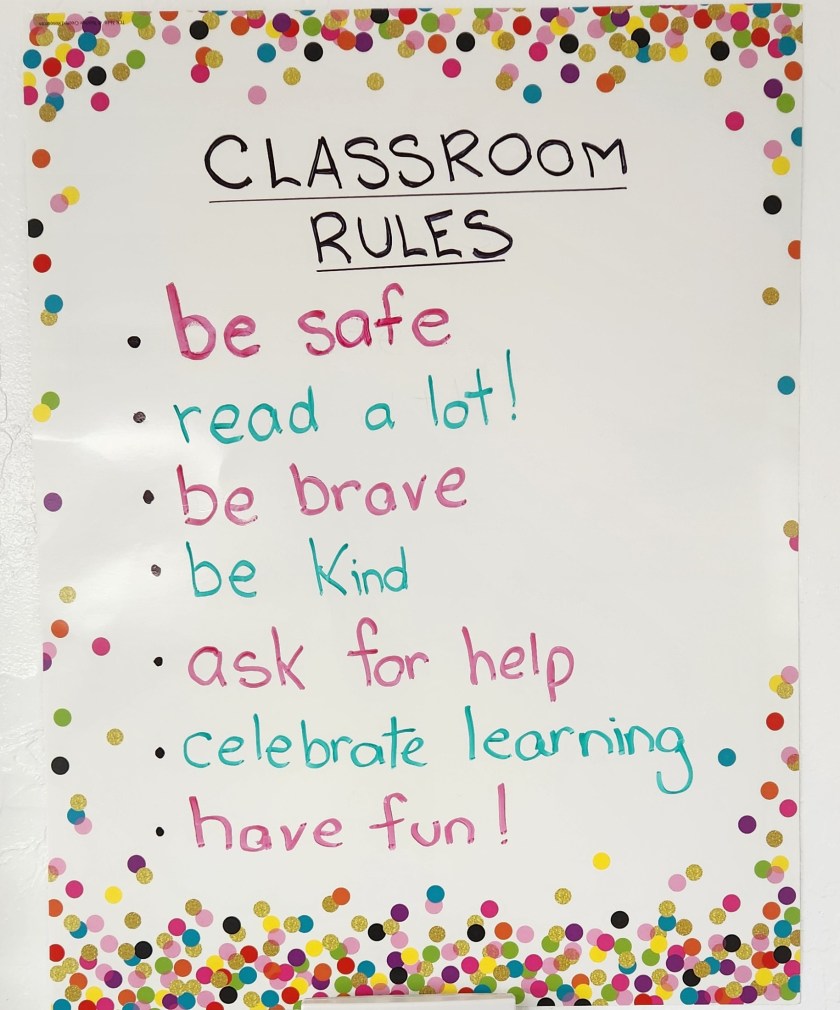 CLASSROOM
RULES
• be safe
• read a lot!
• be brave
• be Kind
• ask for help
• celebrate learning
• have fun!